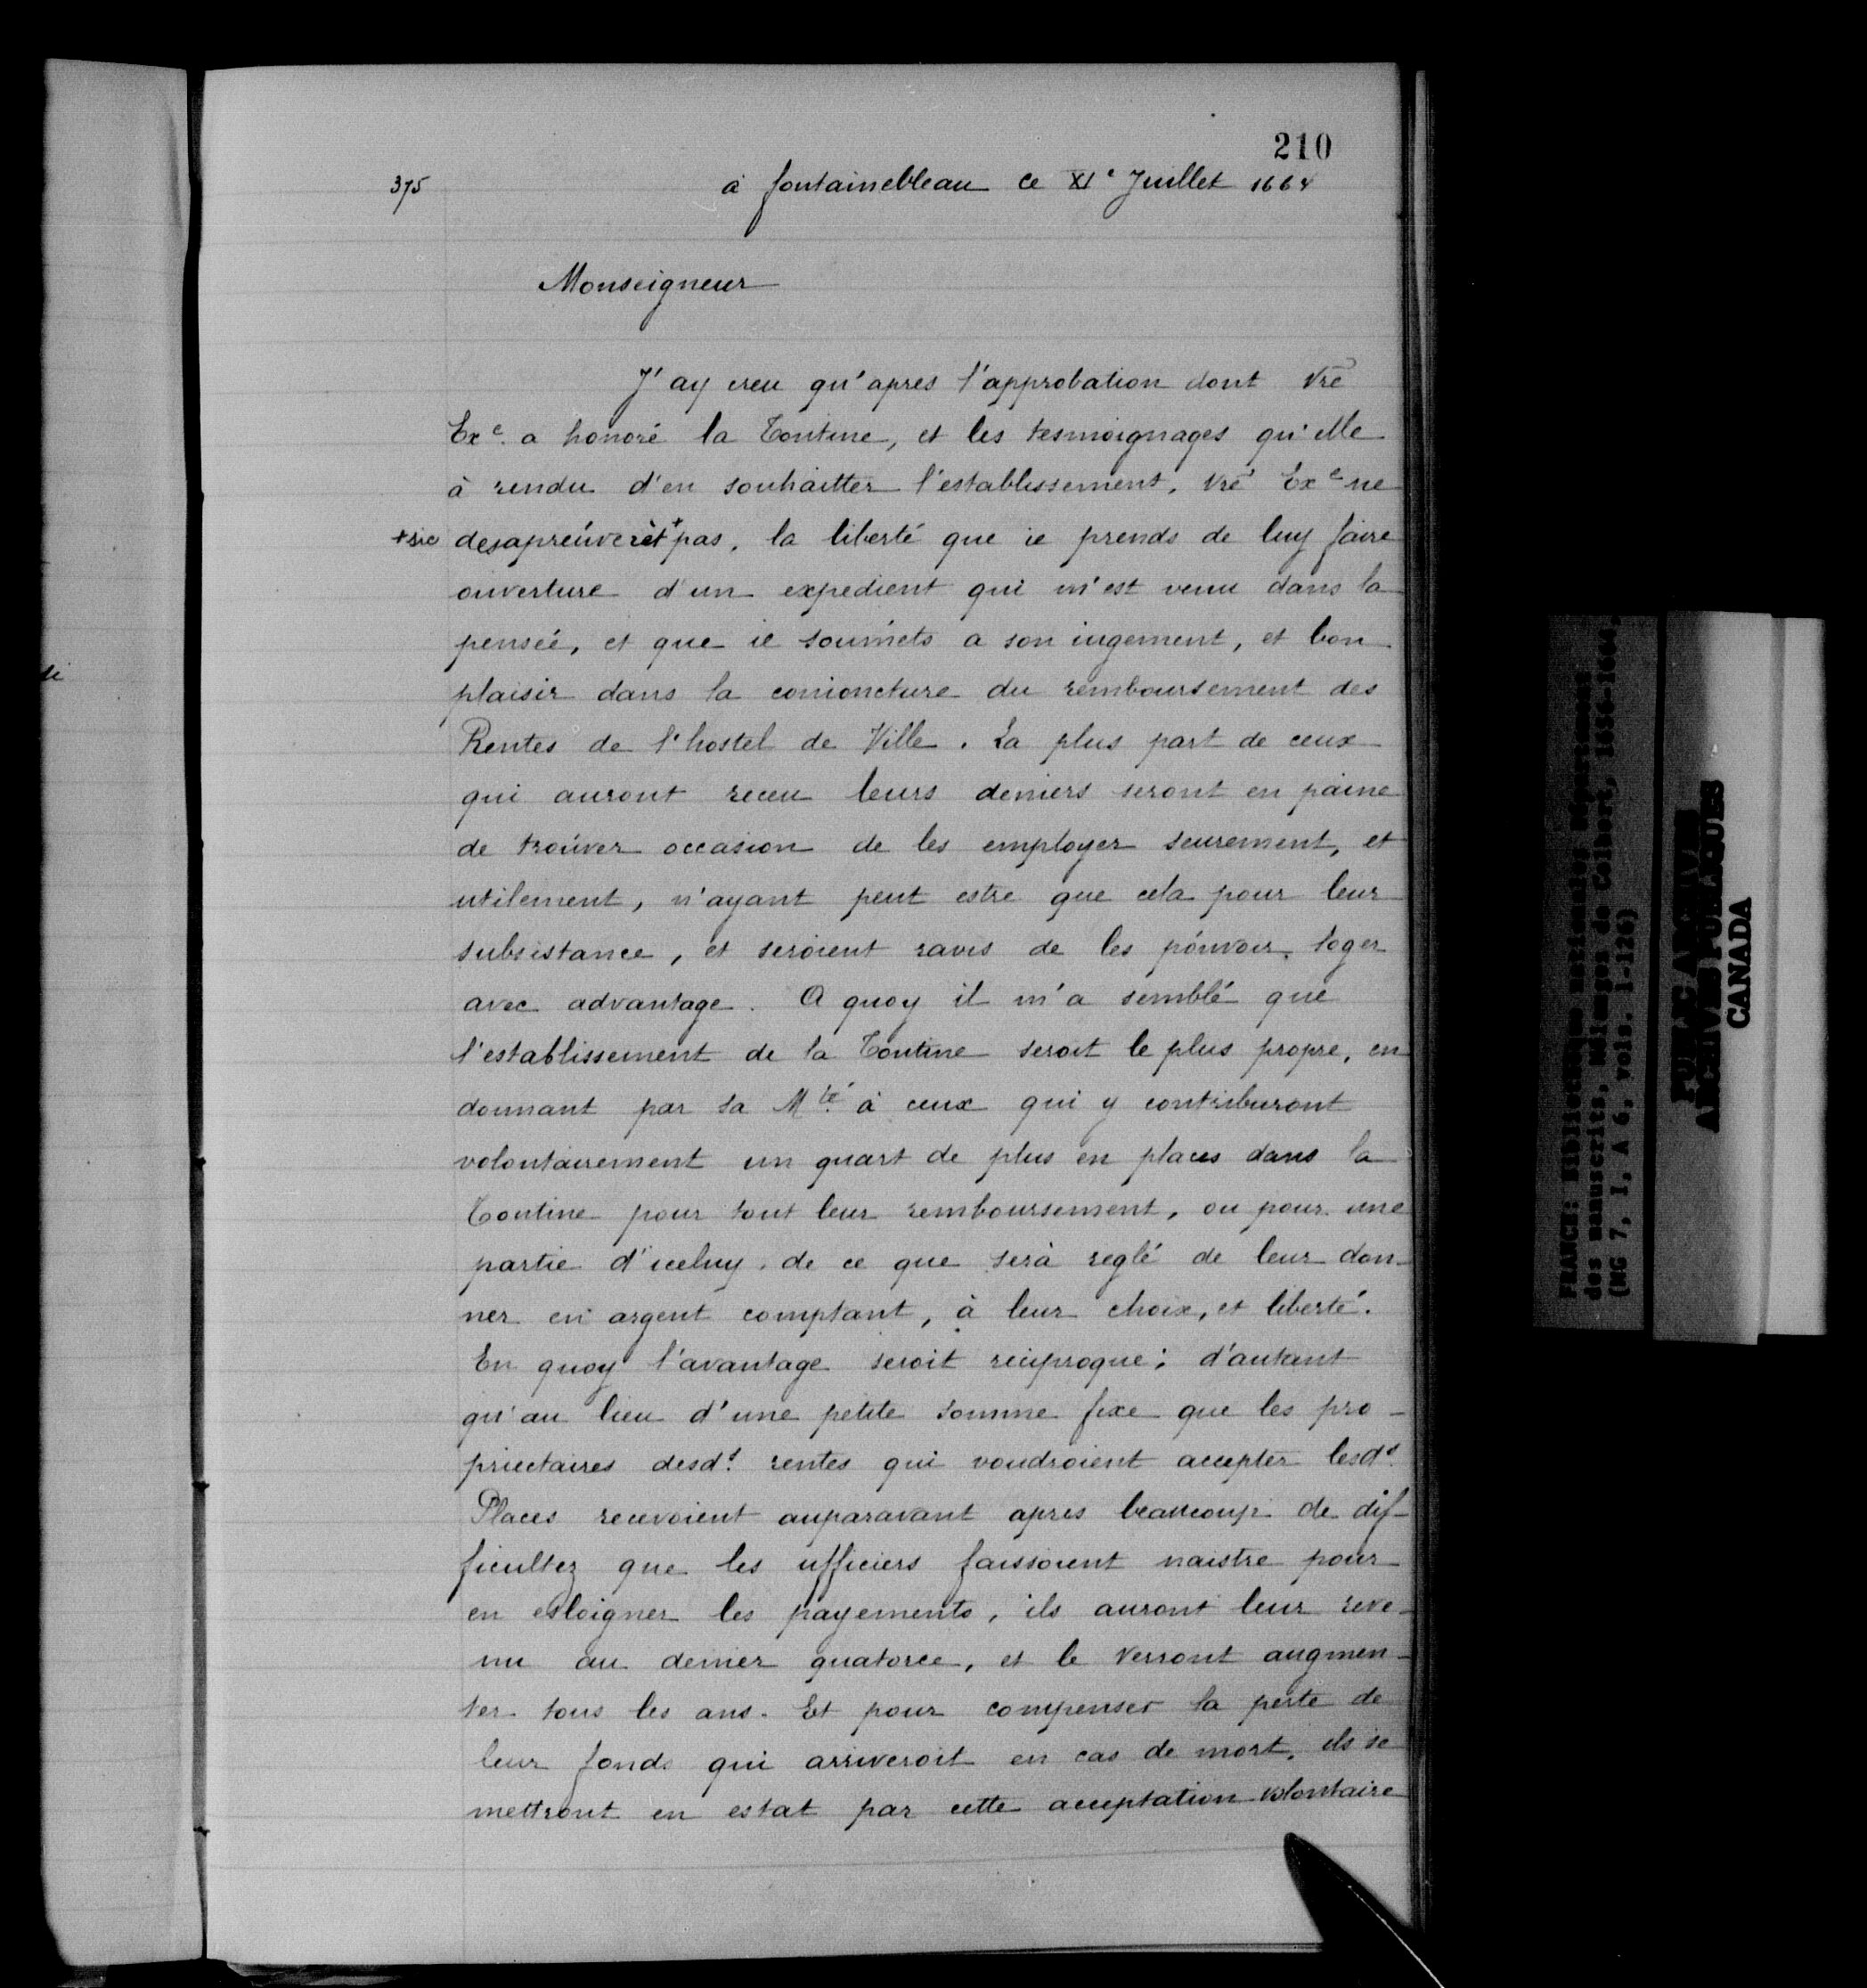 210
375
à fontainebleau ce XIe Juillet 1664
Monseigneur
J'ay creu qu'apres l'approbation dont Vre
Exe. a honoré la Tontine, et les tesmoignages qu'elle
à rendu d'en souhaitter l'establissement, Vre Exe ne
+sic desapreúverèt+ pas, la liberté que ie prends de luy faire
ouverture d'un expedient qui m'est venu dans la
pensée, et que ie soumets a son iugement, et bon
plaisir dans la conioncture du remboursement des
Rentes de l'hostel de Ville. La plus part de ceux
qui auront receu leurs deniers seront en paine
de troúver occasion de les employer seurement, et
utilement, n'ayant peut estre que cela pour leur
subsistance, et seroient ravis de les poúvoir loger
avec advantage. A quoy il m'a semblé que
l'establissement de la Tontine seroit le plus propre, en
donnant par sa Mté à ceux qui y contriburont
volontairement un quart de plus en places dans la
Tontine pour tout leur remboursement, ou pour une
partie d'iceluy, de ce que serà reglé de leur don-
ner en argent comptant, à leur choix, et liberté.
En quoy l'avantage seroit reciproque; d'autant
qu'au lieu d'une petite somme fixe que les pro-
priectaires desds. rentes qui voudroient accepter lesds.
Places recevoient auparavant apres beaucoup de dif-
ficultez que les ufficiers faissoient naistre pour
en esloigner les payements, ils auront leur reve-
nu au denier quatorce, et le Verront augmen-
ter tous les ans. Et pour compenser la perte de
leur fonds qui arriveroit en cas de mort, ils se
mettront en estat par cette acceptation volontaire
FRANCE: Bibliothèque nationale, Département
des manuscrits, Mélanges de Colbert, 1656-1664,
(MG 7, I, A 6, vols. 1-126)
PUBLIC ARCHIVES
ARCHIVES PUBLIQUES
CANADA